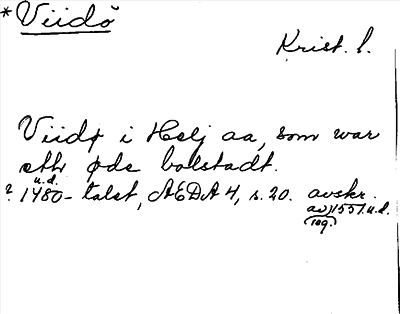 *Viidö
Krist. l.
Viidø i Helj aa, som war
eth øde bolstadt.
u.d.
? 1480-talet, ÆDA 4, s. 20. avskr.
av 1551 u.d.
reg.